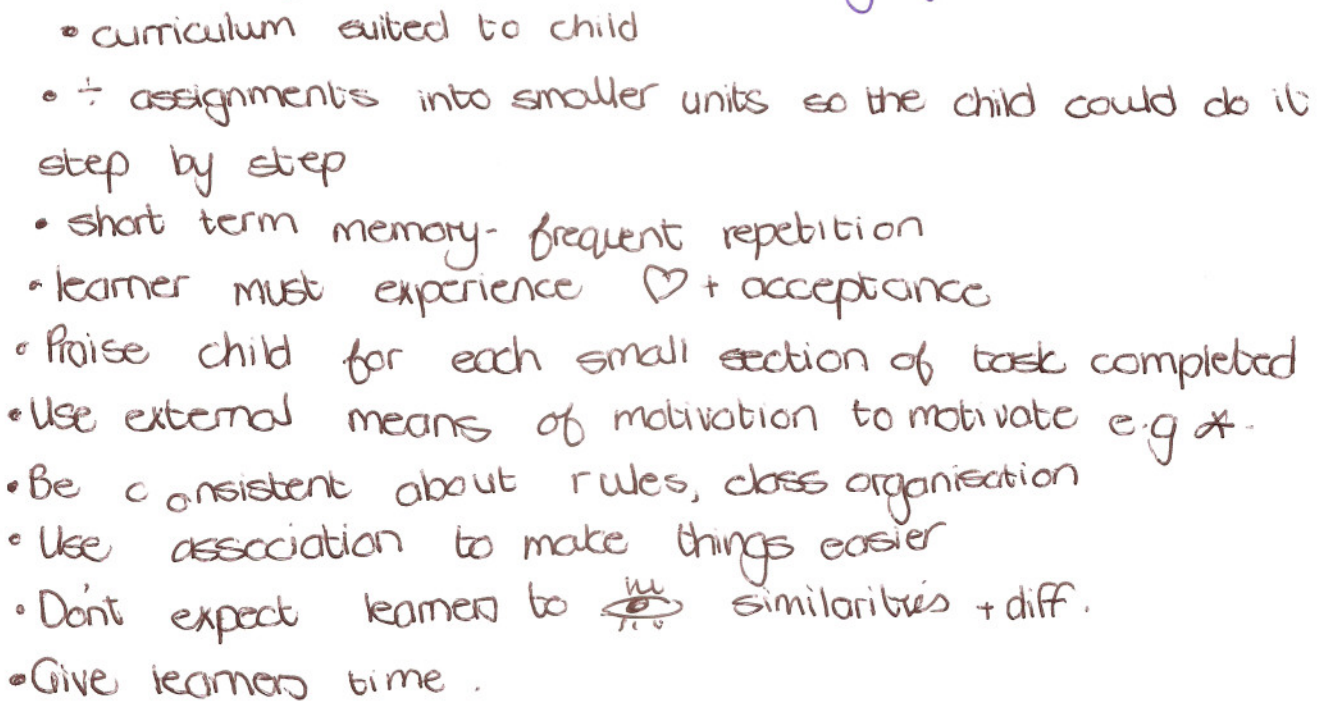 • curriculum suited to child
• ÷ assignments into smaller units so the child could do it
step by step
• short term memory - frequent repetition
• learner must experience ♡ + acceptance
• Praise child for each small section of task completed
• Use external means of motivation to motivate e.g *.
• Be consistent about rules, class organisation
• Use association to make things easier
• Don't expect learners to 👁 similarities + diff.
• Give learners time.